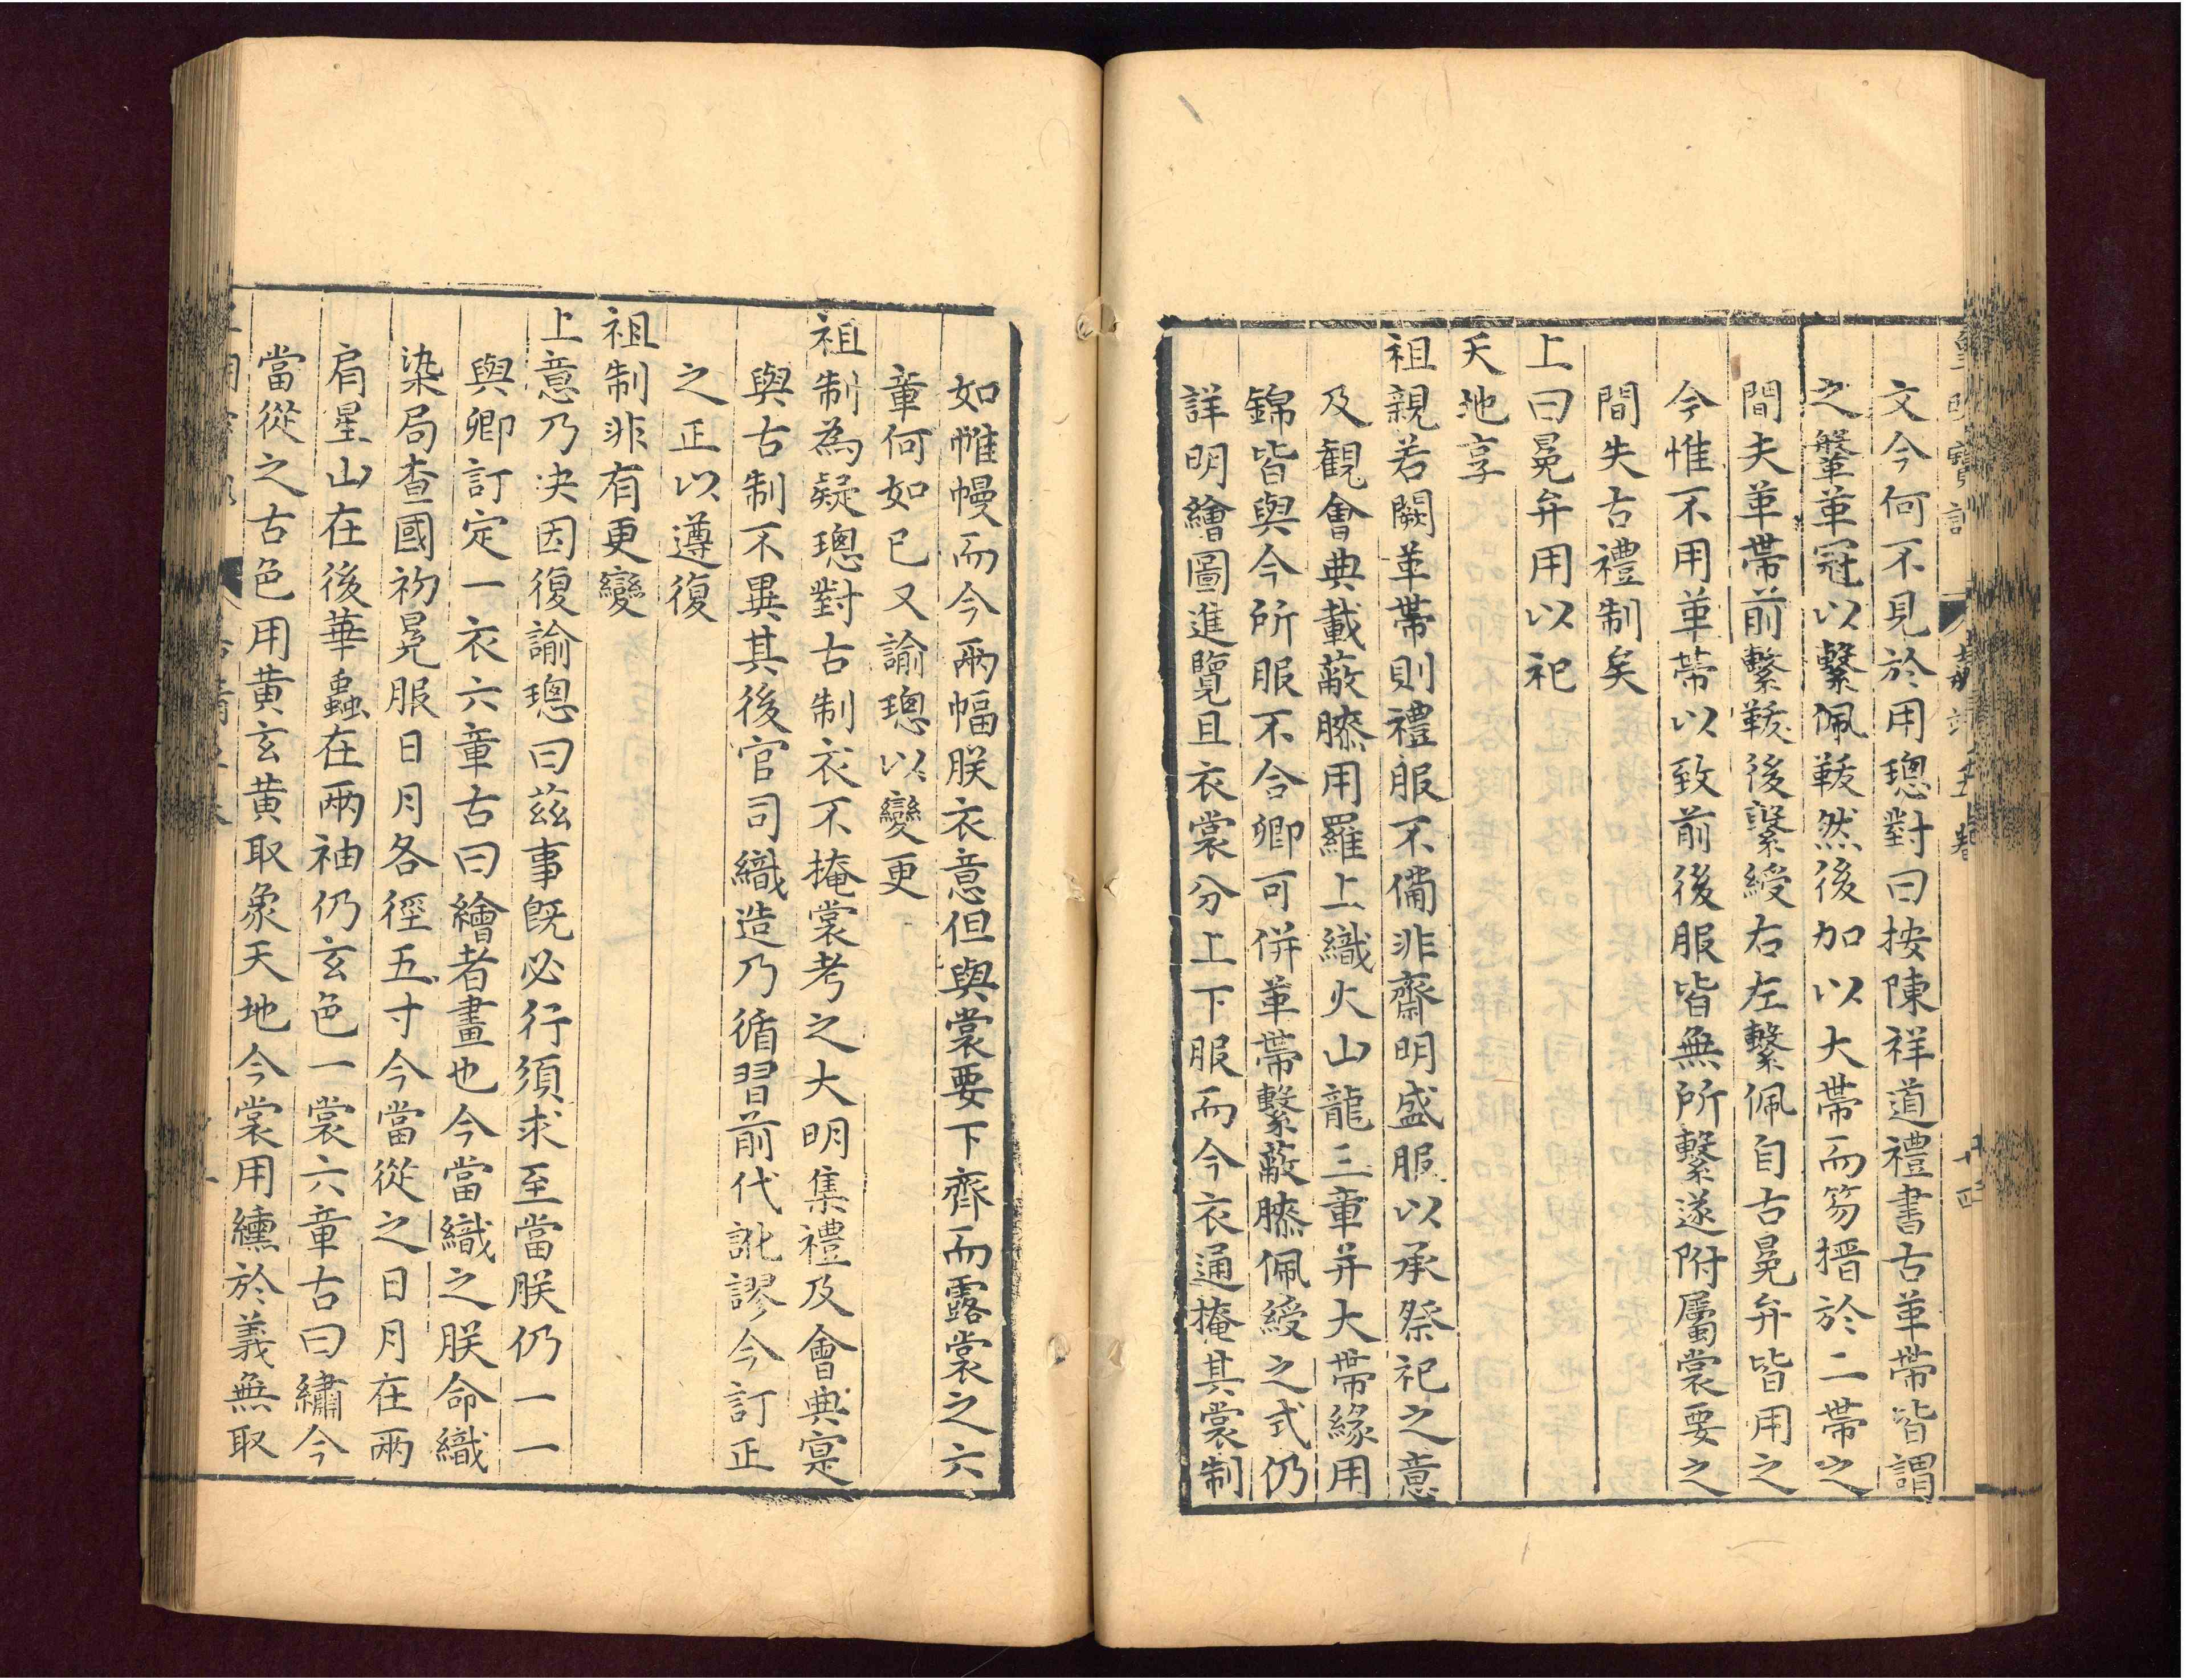 文今何不見於用璁對曰按陳祥道禮書古革帶皆謂
之鞶革冠以繫佩韍然後加以大帶而笏搢於二帶之
間夫革帶前繫韍後繫綬右左繫佩自古冕弁皆用之
今惟不用革帶以致前後服皆無所繫遂附屬裳要之
間失古禮制矣
上曰冕弁用以祀
天地享
祖親若闕革帶則禮服不備非齋明盛服以承祭祀之意
及觀會典載蔽膝用羅上織火山龍三章并大帶緣用
錦皆與今所服不合卿可併革帶繫蔽膝佩綬之式仍
詳明繪圖進覽且衣裳分上下服而今衣通掩其裳制
如帷幔而今兩幅朕衣意但與裳要下齊而露裳之六
章何如已又諭璁以變更
祖制為疑璁對古制衣不掩裳考之大明集禮及會典寔
與古制不異其後官司織造乃循習前代訛謬今訂正
之正以遵復
祖制非有更變
上意乃决因復諭璁曰茲事既必行須求至當朕仍一一
與卿訂定一衣六章古曰繪者畫也今當織之朕命織
染局查國初冕服日月各徑五寸今當從之日月在兩
肩星山在後華蟲在兩袖仍玄色一裳六章古曰繡今
當從之古色用黃玄黃取象天地今裳用纁於義無取